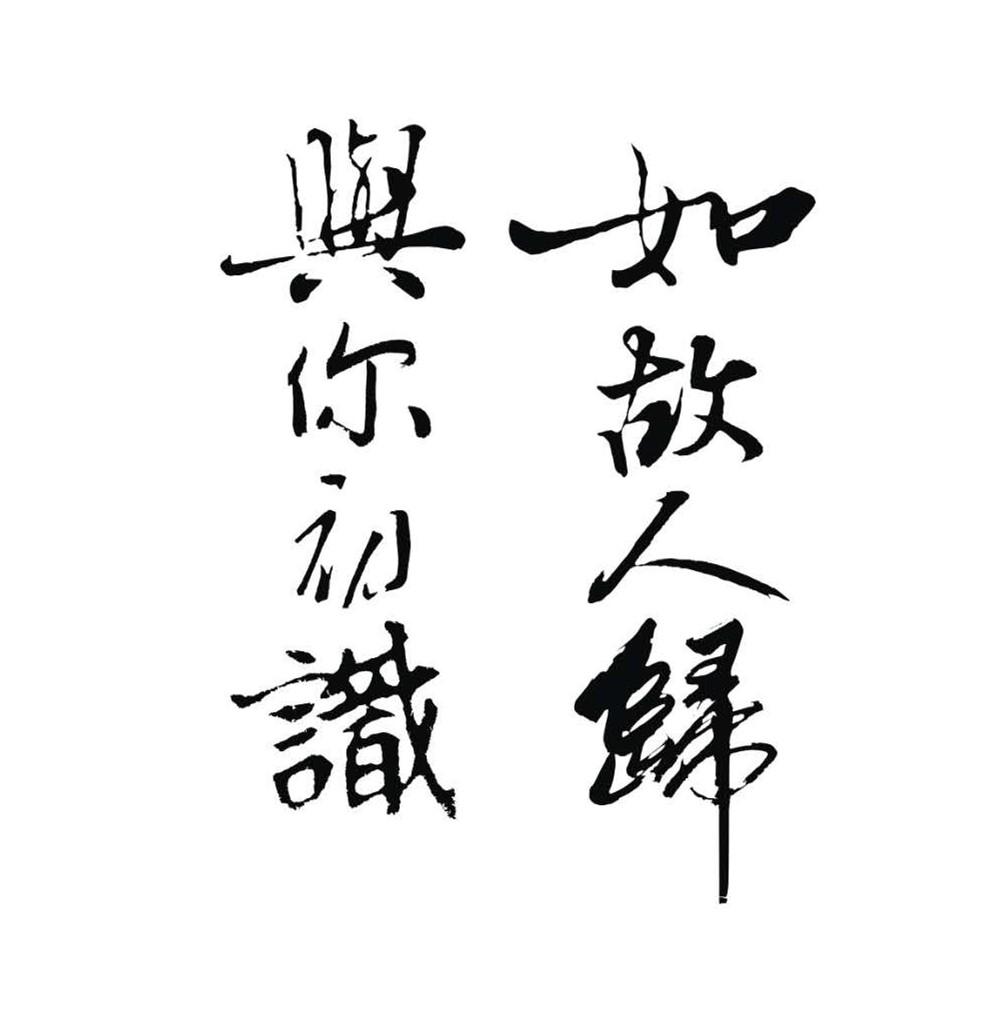 與你初識
如故人歸